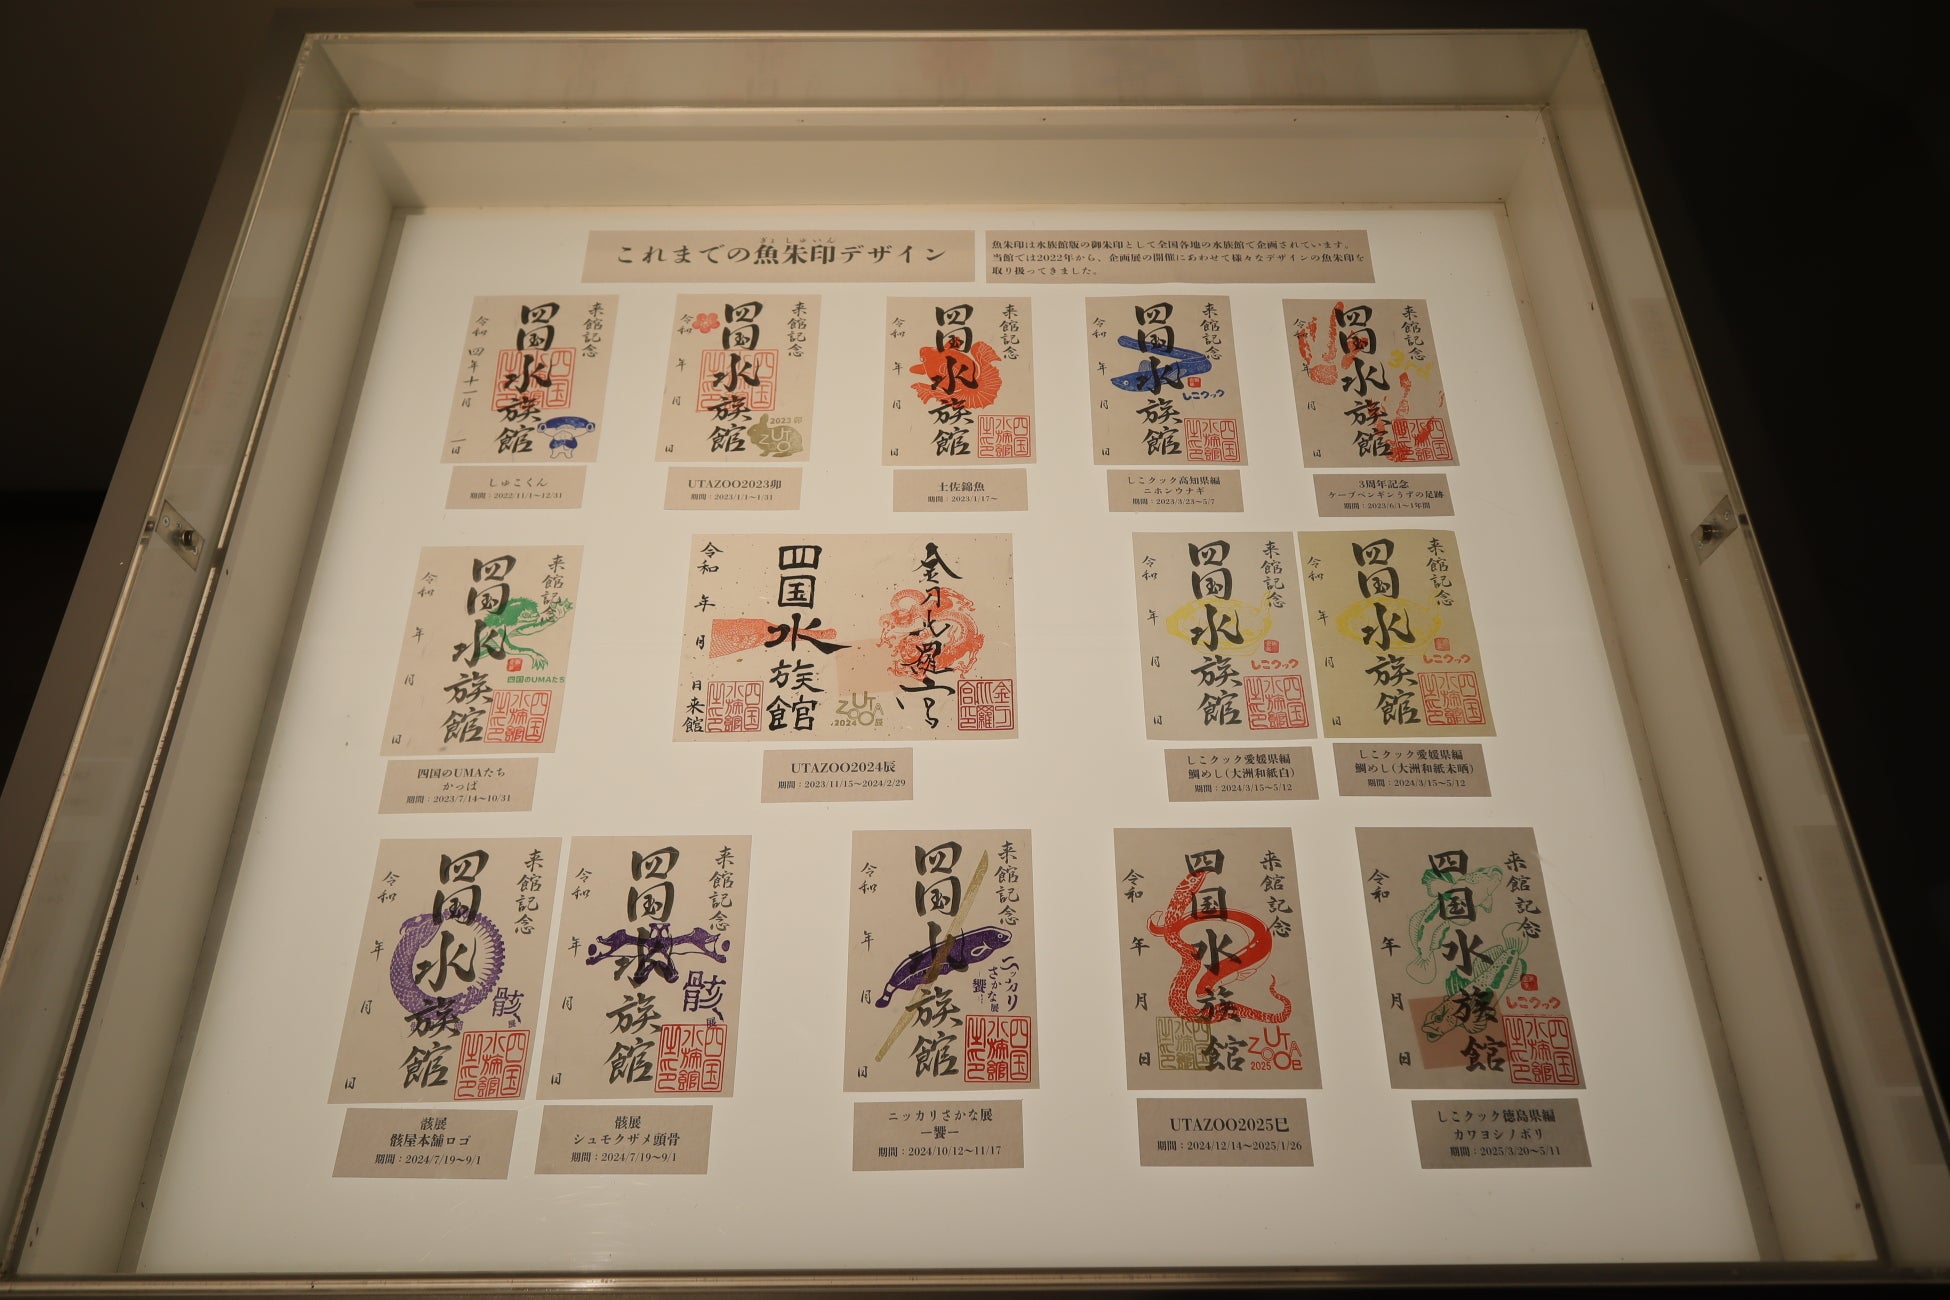 これまでの魚朱印デザイン
ぎょ しゅいん
魚朱印は水族館版の御朱印として全国各地の水族館で企画されています。
当館では2022年から、企画展の開催にあわせて様々なデザインの魚朱印を
取り扱ってきました。
来館記念
四国水族館
令和四年十一月一日
四国水族館之印
しゅこくん
期間：2022/11/1〜12/31
来館記念
四国水族館
令和 年 月 日
四国水族館之印
2023 卯
UTAZOO
UTAZOO2023卯
期間：2023/1/1〜1/31
来館記念
四国水族館
令和 年 月 日
四国水族館之印
土佐錦魚
期間：2023/1/17〜
来館記念
四国水族館
令和 年 月 日
しこクック
四国水族館之印
しこクック高知県編
ニホンウナギ
期間：2023/3/23〜5/7
来館記念
3rd
四国水族館
令和 年 月 日
3周年記念
ケープペンギンうずの足跡
期間：2023/6/1〜1年間
来館記念
四国水族館
令和 年 月 日
四国のUMAたち
四国水族館之印
四国のUMAたち
かっぱ
期間：2023/7/14〜10/31
金刀比羅宮
四国水族館
令和 年 月 日来館
四国水族館之印
UTAZOO
2024 辰
UTAZOO2024辰
期間：2023/11/15〜2024/2/29
来館記念
四国水族館
令和 年 月 日
しこクック
四国水族館之印
しこクック愛媛県編
鯛めし(大洲和紙白)
期間：2024/3/15〜5/12
来館記念
四国水族館
令和 年 月 日
しこクック
四国水族館之印
しこクック愛媛県編
鯛めし(大洲和紙未晒)
期間：2024/3/15〜5/12
来館記念
四国水族館
令和 年 月 日
骸展
四国水族館之印
骸展
骸屋本舗ロゴ
期間：2024/7/19〜9/1
来館記念
四国水族館
令和 年 月 日
骸展
四国水族館之印
骸展
シュモクザメ頭骨
期間：2024/7/19〜9/1
来館記念
四国水族館
令和 年 月 日
ニッカリ
さかな展
―饗―
四国水族館之印
ニッカリさかな展
―饗―
期間：2024/10/12〜11/17
来館記念
四国水族館
令和 年 月 日
四国水族館之印
UTAZOO
2025
UTAZOO2025巳
期間：2024/12/14〜2025/1/26
来館記念
四国水族館
令和 年 月 日
しこクック
四国水族館之印
しこクック徳島県編
カワヨシノボリ
期間：2025/3/20〜5/11